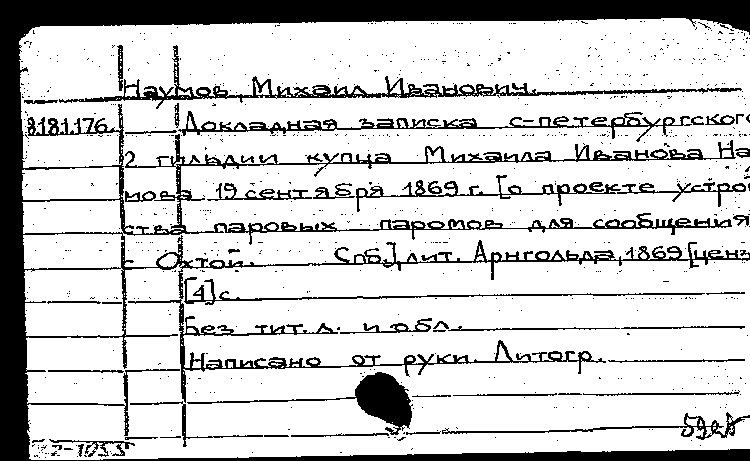 Наумов, Михаил Иванович.
8.181.176. Докладная записка с-петербургского
2 гильдии купца Михаила Иванова На
мова 19 сентября 1869 г. [о проекте устро
ства паровых паромов для сообщения
с Охтой. Спб.], лит. Арнгольда, 1869 [ценз
[4] с.
Без тит. л. и обл.
Написано от руки. Литогр.